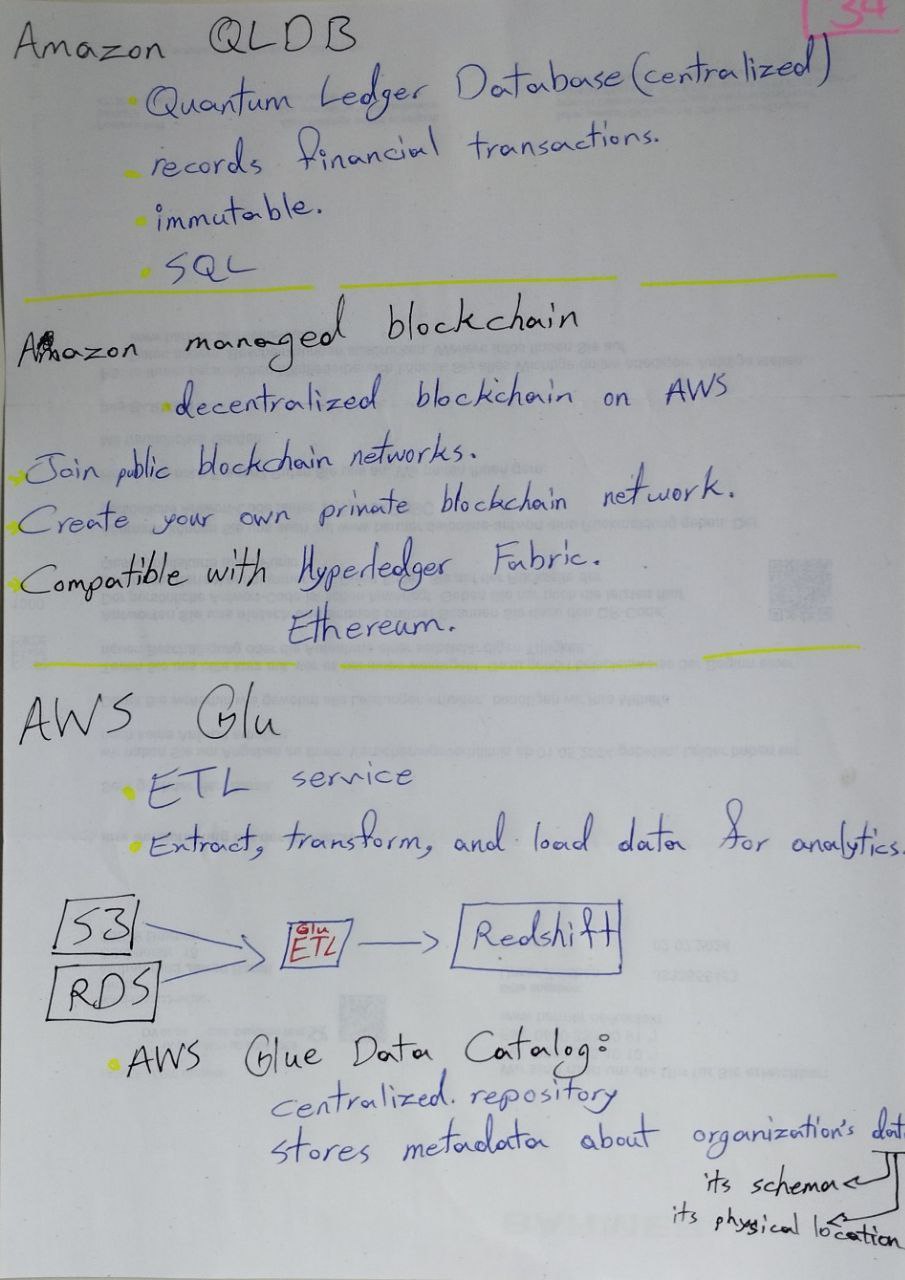 34
Amazon QLDB
Quantum Ledger Database (centralized)
records financial transactions.
immutable.
SQL
Amazon managed blockchain
decentralized blockchain on AWS
Join public blockchain networks.
Create your own private blockchain network.
Compatible with Hyperledger Fabric.
Ethereum.
AWS Glu
ETL service
Extract, transform, and load data for analytics.
S3
RDS
Glu
ETL
Redshift
AWS Glue Data Catalog:
centralized. repository
stores metadata about organization's dat
its schema
its physical location